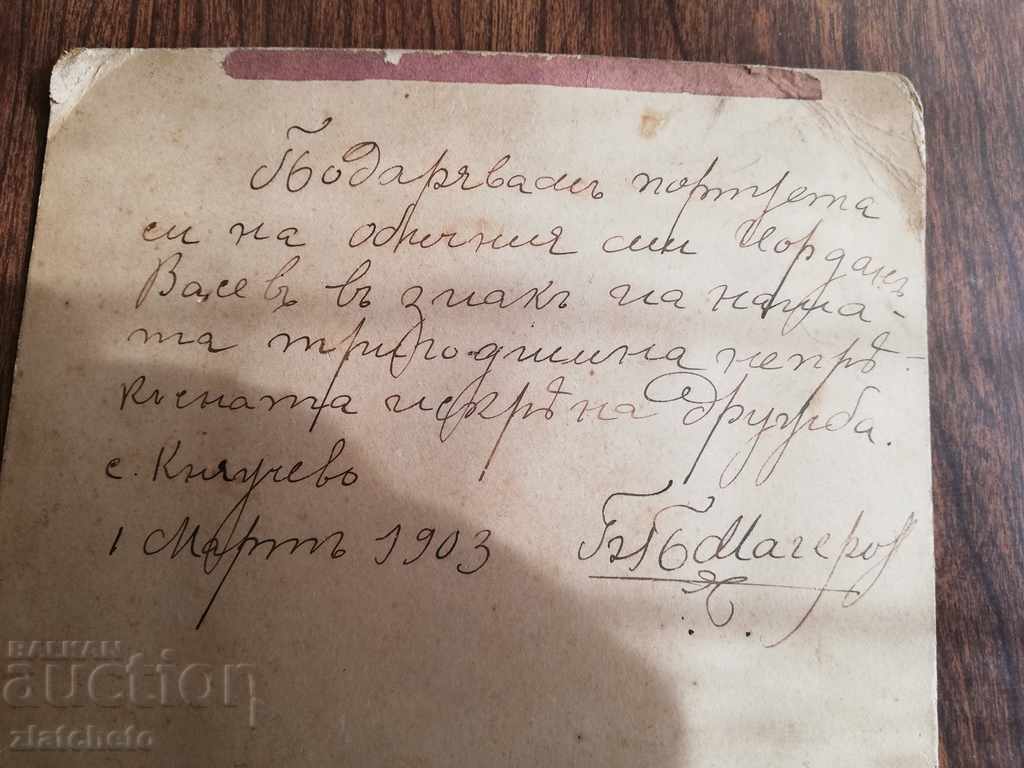 Подарявамъ портрета
си на обичния ми Йорданъ
Васевъ въ знакъ на наша-
та тригодишна непрѣ-
късната искрѣна дружба.
с. Княжево
1 Мартъ 1903
Магеров
BALKAN
auction
zlatcheto